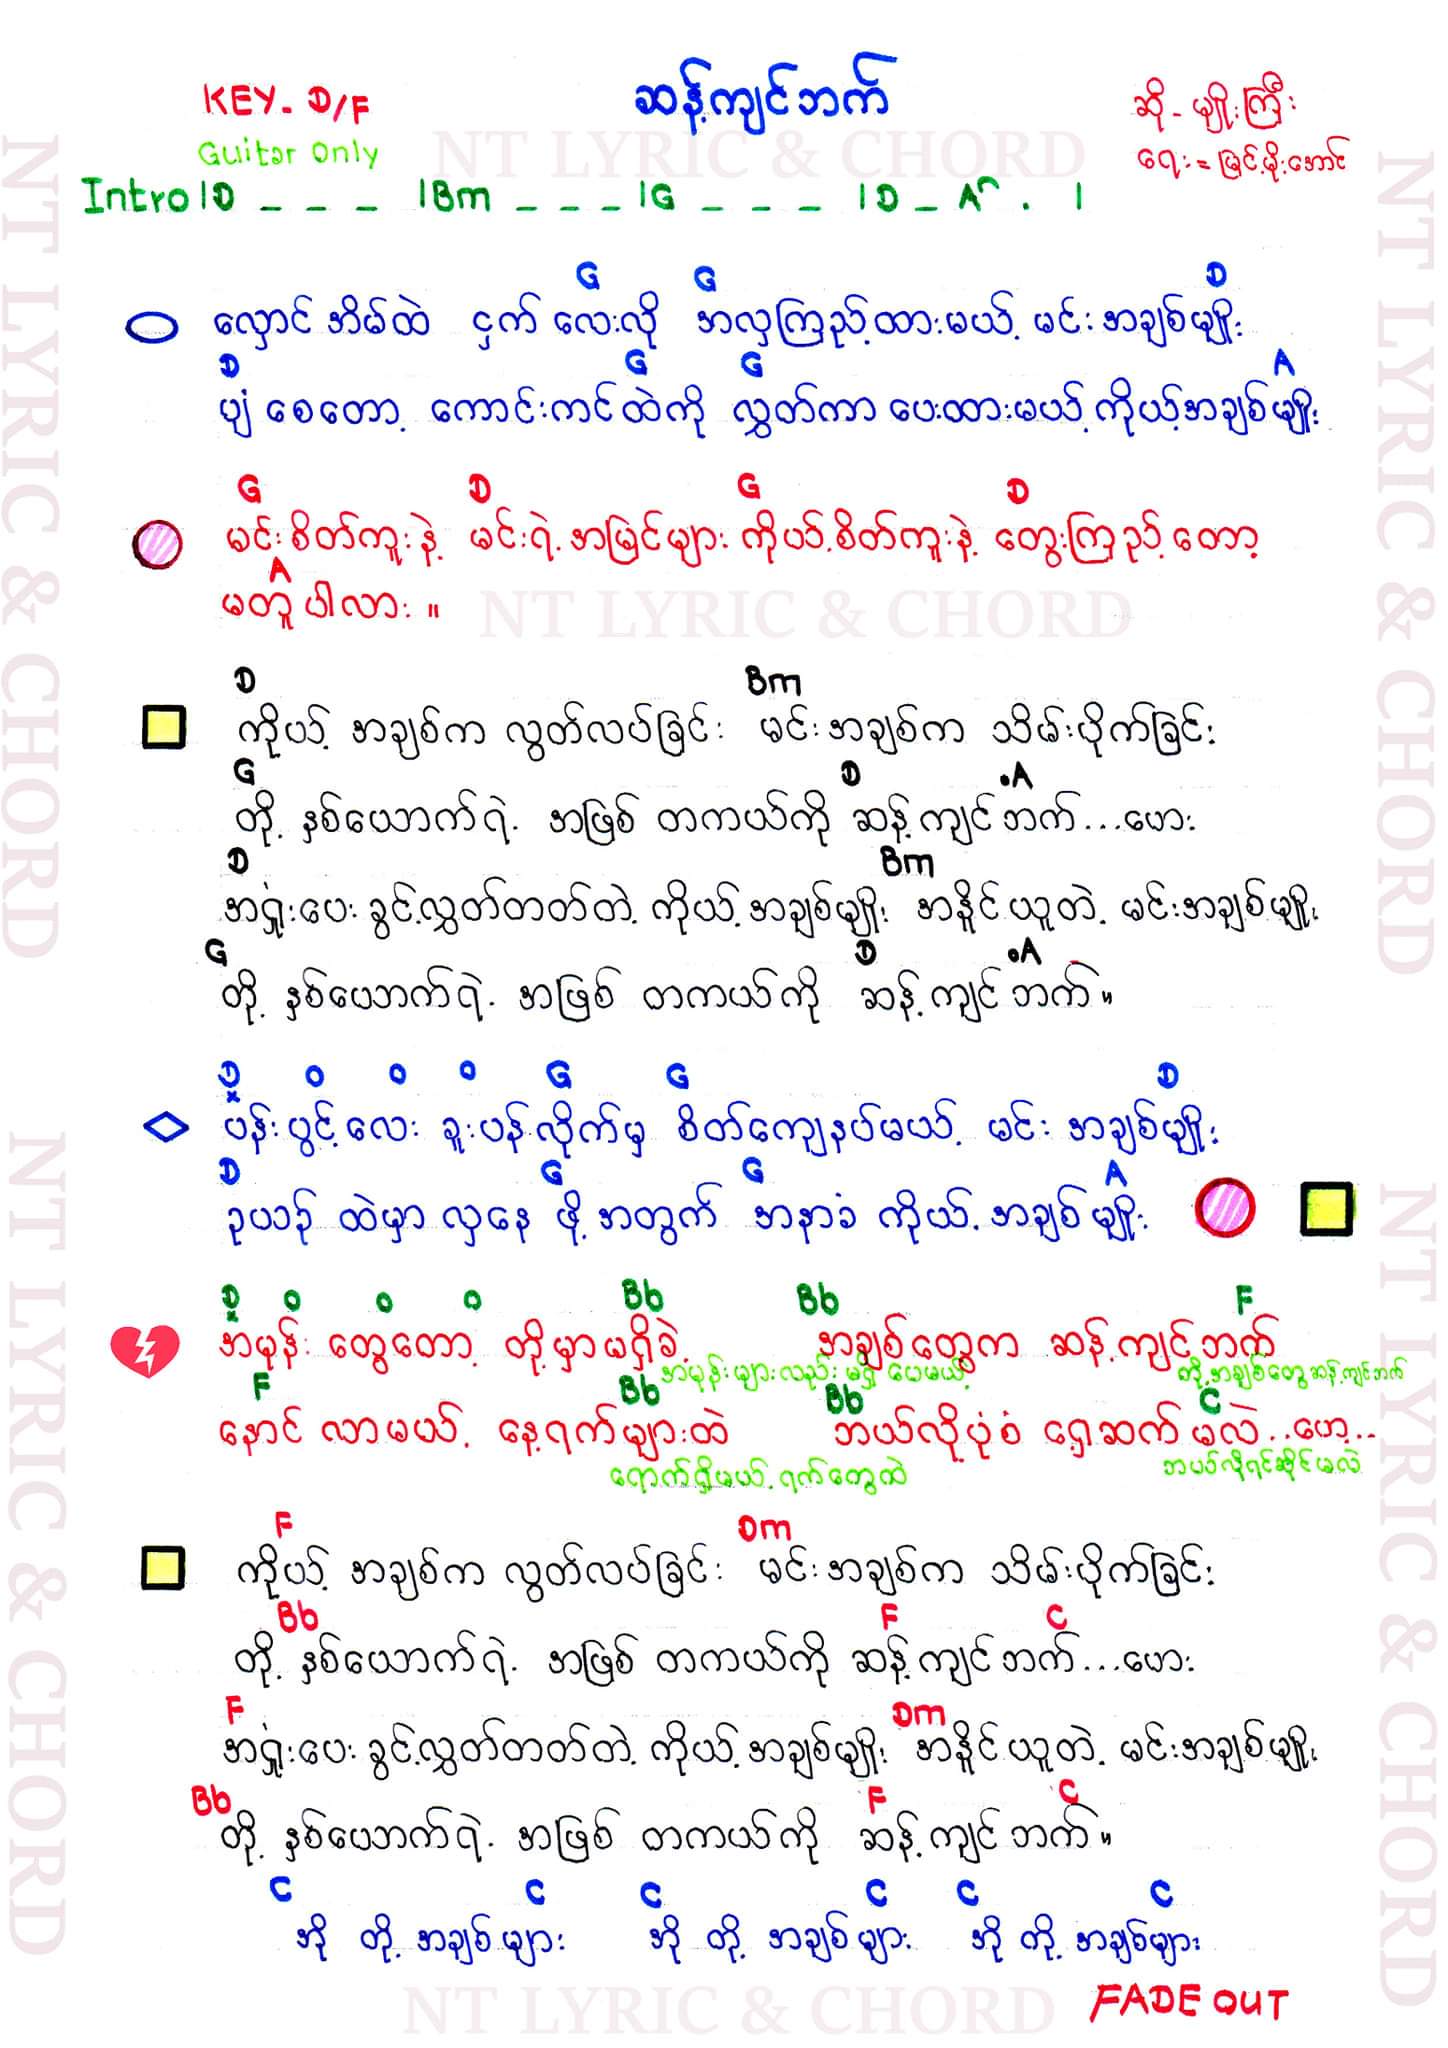 ဆန့်ကျင်ဘက်
KEY - D/F
ဆို - မျိုးကြီး
Guitar Only
ရေး = မြင့်မိုးအောင်
NT LYRIC & CHORD
Intro | D _ _ _ | Bm _ _ _ | G _ _ _ | D _ A . |
G G D
လှောင်အိမ်ထဲ ငှက်လေးလို အလှကြည့်ထားမယ့် မင်းအချစ်မျိုး
D G G A
ပျံစေတော့ ကောင်းကင်ထဲကို လွှတ်ကာပေးထားမယ့် ကိုယ့်အချစ်မျိုး
G D G D
မင်းစိတ်ကူးနဲ့ မင်းရဲ့အမြင်များ ကိုယ့်စိတ်ကူးနဲ့ တွေးကြည့်တော့
A
မတူပါလား ။
NT LYRIC & CHORD
D Bm
ကိုယ့် အချစ်က လွတ်လပ်ခြင်း မင်းအချစ်က သိမ်းပိုက်ခြင်း
G D .A
တို့ နှစ်ယောက်ရဲ့ အဖြစ် တကယ်ကို ဆန့်ကျင်ဘက်...ဟေး
D Bm
အရှုံးပေးခွင့်လွှတ်တတ်တဲ့ ကိုယ့်အချစ်မျိုး အနိုင်ယူတဲ့ မင်းအချစ်မျိုး
G D .A
တို့ နှစ်ယောက်ရဲ့ အဖြစ် တကယ်ကို ဆန့်ကျင်ဘက်။
D o o o G G D
ပန်းပွင့်လေး ခူးပန်လိုက်မှ စိတ်ကျေနပ်မယ့် မင်း အချစ်မျိုး
D G G A
ဥယျာဉ်ထဲမှာ လှနေဖို့အတွက် အနာခံ ကိုယ့်အချစ်မျိုး
D o o o Bb Bb F
အမုန်းတွေတော့ တို့မှာမရှိခဲ့ အချစ်တွေက ဆန့်ကျင်ဘက်
အမုန်းများလည်းမရှိပေမယ့် တို့အချစ်တွေဆန့်ကျင်ဘက်
F Bb Bb C
နောင်လာမယ့် နေ့ရက်များထဲ ဘယ်လိုပုံစံ ရှေ့ဆက်မလဲ..ဟေ့..
ရောက်ရှိမယ့်ရက်တွေထဲ ဘယ်လိုရင်ဆိုင်မလဲ
F Dm
ကိုယ့် အချစ်က လွတ်လပ်ခြင်း မင်းအချစ်က သိမ်းပိုက်ခြင်း
Bb F C
တို့ နှစ်ယောက်ရဲ့ အဖြစ် တကယ်ကို ဆန့်ကျင်ဘက်...ဟေး
F Dm
အရှုံးပေးခွင့်လွှတ်တတ်တဲ့ ကိုယ့်အချစ်မျိုး အနိုင်ယူတဲ့ မင်းအချစ်မျိုး
Bb F C
တို့ နှစ်ယောက်ရဲ့ အဖြစ် တကယ်ကို ဆန့်ကျင်ဘက်။
C C C C C C
အို တို့အချစ်များ အို တို့အချစ်များ အို တို့အချစ်များ
FADE OUT
NT LYRIC & CHORD
NT LYRIC & CHORD
NT LYRIC & CHORD
NT LYRIC & CHORD
NT LYRIC & CHORD